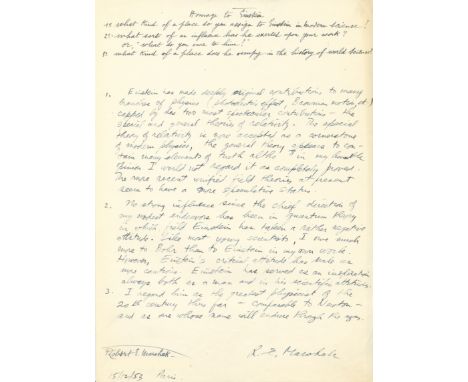 Homage to Einstein
1) What kind of a place do you assign to Einstein in modern science?
2) What sort of an influence has he exerted upon your work?
or, "what do you owe to him?"
3) What kind of a place does he occupy in the history of world science?
1. Einstein has made deeply original contributions to many
branches of physics (photoelectric effect, Brownian motion, etc)
capped by his two most spectacular contributions – the
special and general theories of relativity. The special
theory of relativity is now accepted as a cornerstone
of modern physics, the general theory appears to con-
tain many elements of truth altho in my humble
opinion I would not regard it as completely proved.
The more recent unified field theories at present
seem to have a more speculative status.
2. No strong influence since the chief direction of
my modest endeavors has been in quantum theory
in which field Einstein has taken a rather negative
attitude. Like most young scientists, I owe much
more to Bohr than to Einstein in my own work.
However, Einstein's critical attitude has made us
more cautious. Einstein has served as an inspiration
always both as a man and in his scientific attitudes.
3. I regard him as the greatest physicist of the
20th century thus far – comparable to Newton –
and as one whose name will endure through the ages.
Robert E. Marshak
R. E. Marshak
15/12/53 Paris